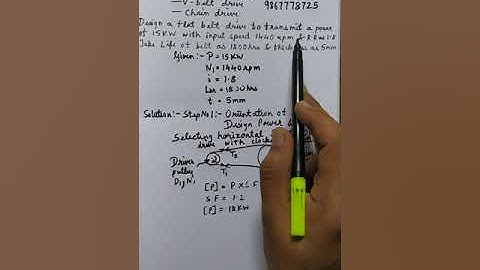 — V-belt drive 9867778725
— Chain drive
Design a flat belt drive to transmit a power
of 15 KW with input speed 1440 rpm & R.R as 1.8
Take Life of belt as 1800 hrs & thickness as 5mm
Given:- P = 15KW
N₁ = 1440 rpm
i = 1.8
= 1800 hrs
t = 5mm
Solution:- Step No 1:- Orientation of
Design Power &
Selecting horizontal
drive with clock
Driver
pulley
D₁, N₁
T₂
T₁
[P] = P × S.F
S F = 1.2
[P] = 18 KW